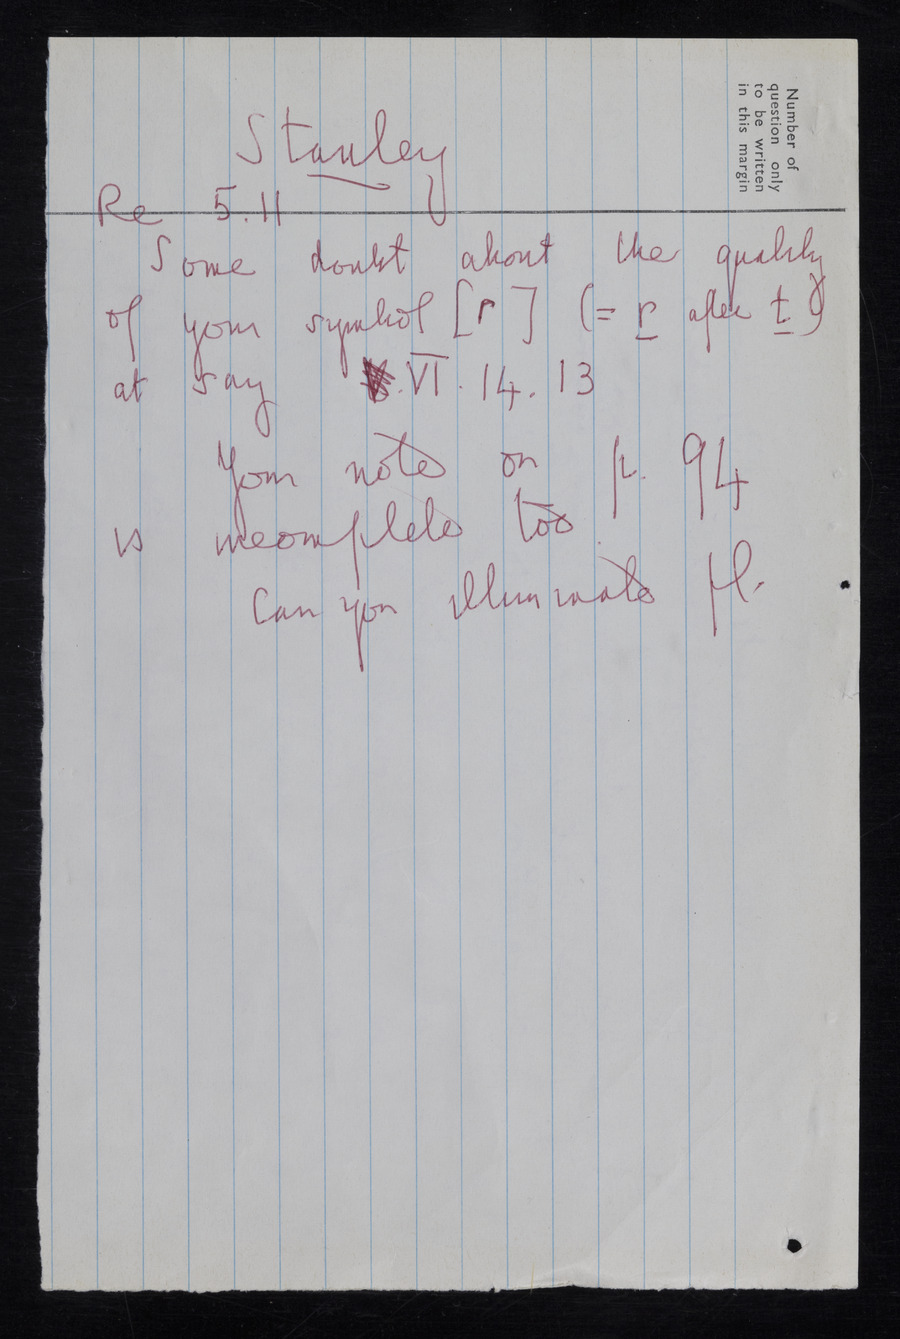 Number of
question only
to be written
in this margin
Stanley
Re 5.11
Some doubt about the quality
of your symbol [r] (= r after t)
at say VI.14.13
Your note on p. 94
is incomplete too
Can you illuminate pl.